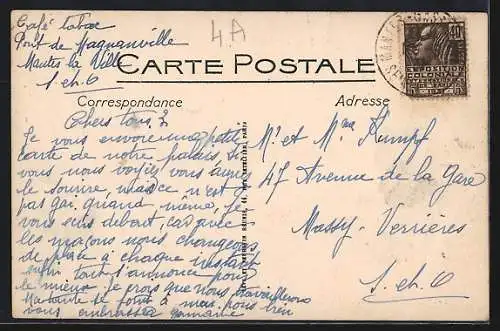 Café tabac
Pont de Magnanville
Mantes la Ville
S. et. O
4A
CARTE POSTALE
Correspondance
Adresse
EXPOSITION
COLONIALE
Chers tous 3
Je vous envoie une petite
carte de notre palais, si
vous nous voyiez vous auriez
le sourire, mais ce n'est
pas gai quand même, je
vous écris debout, car avec
les maçons nous changeons
de place à chaque instant
enfin tout s'annonce pour
le mieux. Je crois que nous travaillerons
vous embrassons
Mr et Mme Kumpf
47 Avenue de la Gare
Massy-Verrières
S. et. O